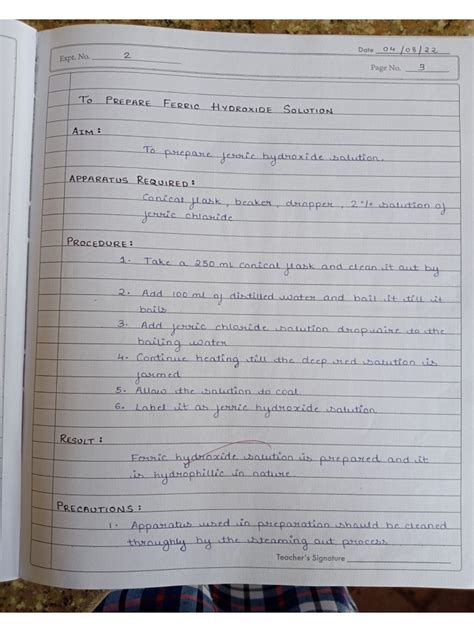 Date 04/08/22
Expt. No. 2
Page No. 3
TO PREPARE FERRIC HYDROXIDE SOLUTION
AIM :
To prepare ferric hydroxide solution.
APPARATUS REQUIRED :
Conical flask, beaker, dropper, 2% solution of
ferric chloride
PROCEDURE :
1. Take a 250 mL conical flask and clean it out by
2. Add 100 ml of distilled water and boil it till it
boils
3. Add ferric chloride solution dropwire to the
boiling water
4. Continue heating till the deep red solution is
formed
5. Allow the solution to cool
6. Label it as ferric hydroxide solution
RESULT :
Ferric hydroxide solution is prepared and it
is hydrophillic in nature.
PRECAUTIONS :
1. Apparatus used in preparation should be cleaned
throughly by the steaming out process
Teacher's Signature